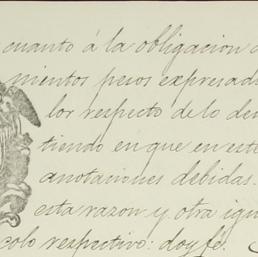 cuanto á la obligacion
mientos pesos expresad
lor respecto de lo de
tiendo en que en este
anotaciones debidas.
esta razon y otra igu
colo respectivo: doy fe.